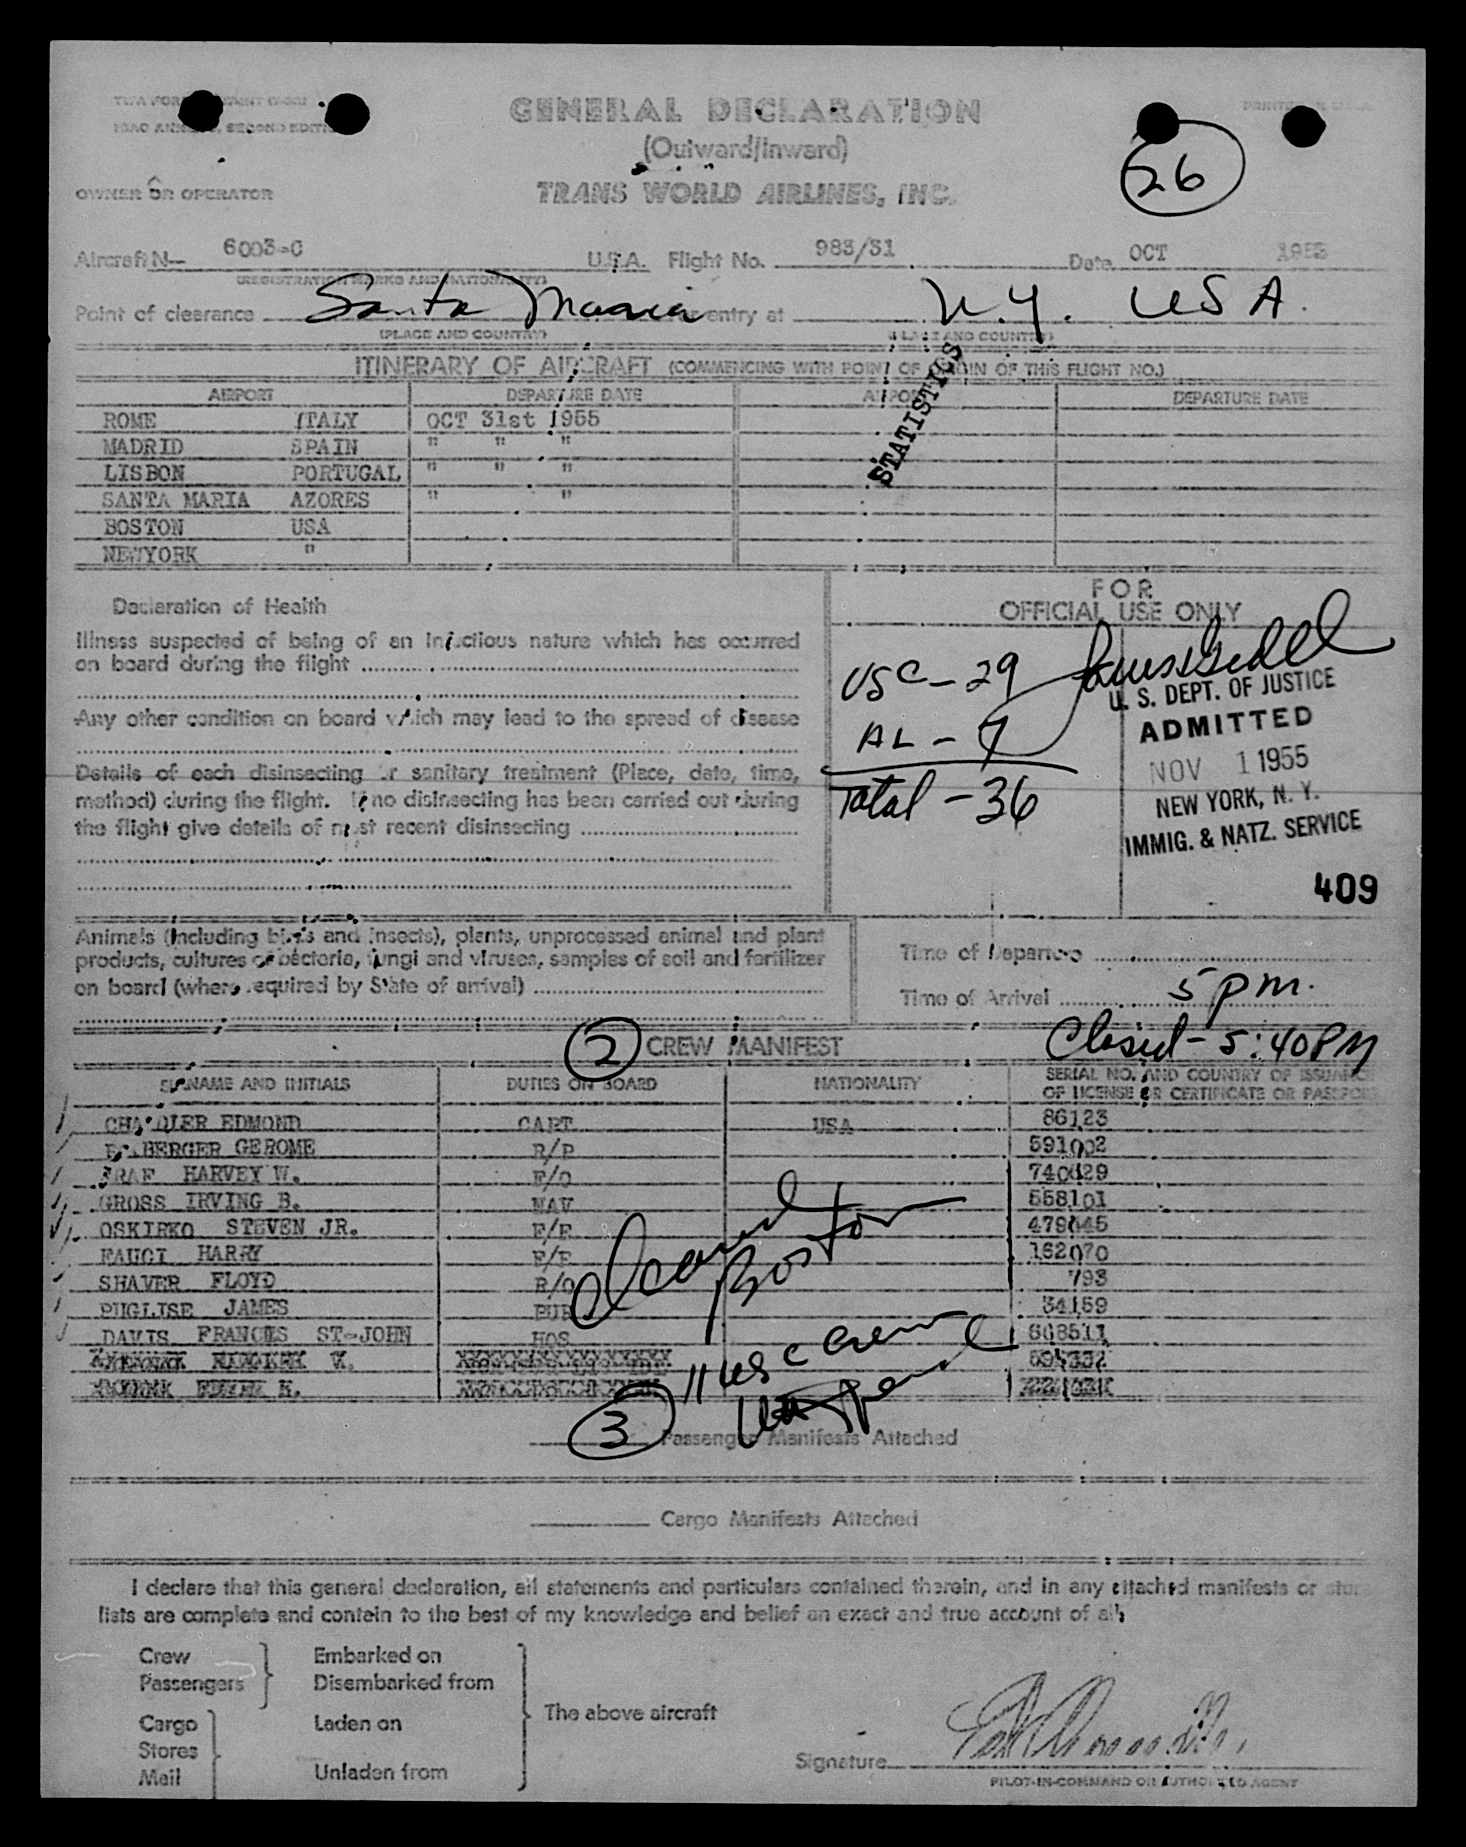 GENERAL DECLARATION
(Outward/Inward)
26
OWNER OR OPERATOR TRANS WORLD AIRLINES, INC.
Aircraft N— 6003-C U.S.A. Flight No. 983/31 Date OCT 1955
(REGISTRATION MARKS AND NATIONALITY)
Point of clearance Santa Maria For entry at N.Y. USA.
(PLACE AND COUNTRY) (PLACE AND COUNTRY)
STATISTICS
ITINERARY OF AIRCRAFT (COMMENCING WITH POINT OF ORIGIN OF THIS FLIGHT NO.)
AIRPORT DEPARTURE DATE AIRPORT DEPARTURE DATE
ROME ITALY OCT 31st 1955
MADRID SPAIN " " "
LISBON PORTUGAL " " "
SANTA MARIA AZORES " "
BOSTON USA
NEWYORK "
Declaration of Health
Illness suspected of being of an infectious nature which has occurred
on board during the flight
Any other condition on board which may lead to the spread of disease
Details of each disinsecting or sanitary treatment (Place, date, time,
method) during the flight. If no disinsecting has been carried out during
the flight give details of most recent disinsecting
FOR
OFFICIAL USE ONLY
USC - 29
AL - 7
Total - 36
U. S. DEPT. OF JUSTICE
ADMITTED
NOV 1 1955
NEW YORK, N. Y.
IMMIG. & NATZ. SERVICE
409
Animals (including birds and insects), plants, unprocessed animal and plant
products, cultures of bacteria, fungi and viruses, samples of soil and fertilizer
on board (where required by State of arrival)
Time of Departure
Time of Arrival 5 pm.
Closed - 5:40 PM
2 CREW MANIFEST
SURNAME AND INITIALS DUTIES ON BOARD NATIONALITY SERIAL NO. AND COUNTRY OF ISSUANCE
OF LICENSE OR CERTIFICATE OR PASSPORT
CHANDLER EDMOND CAPT. USA 86123
GEROME R/P 591002
GRAF HARVEY W. F/O 740829
GROSS IRVING B. NAV 558101
OSKIRKO STEVEN JR. F/E 479645
FAUCI HARRY F/E 162070
SHAVER FLOYD R/O 793
PUGLISE JAMES PUR 34159
DAVIS FRANCES ST-JOHN HOS 608511
Cleared
Boston
11 USC Crew
3 Passenger Manifests Attached
Cargo Manifests Attached
I declare that this general declaration, all statements and particulars contained therein, and in any attached manifests or
lists are complete and contain to the best of my knowledge and belief an exact and true account of all
Crew
Passengers
Embarked on
Disembarked from
Cargo
Stores
Mail
Laden on
Unladen from
The above aircraft
Signature
PILOT-IN-COMMAND OR AUTHORIZED AGENT